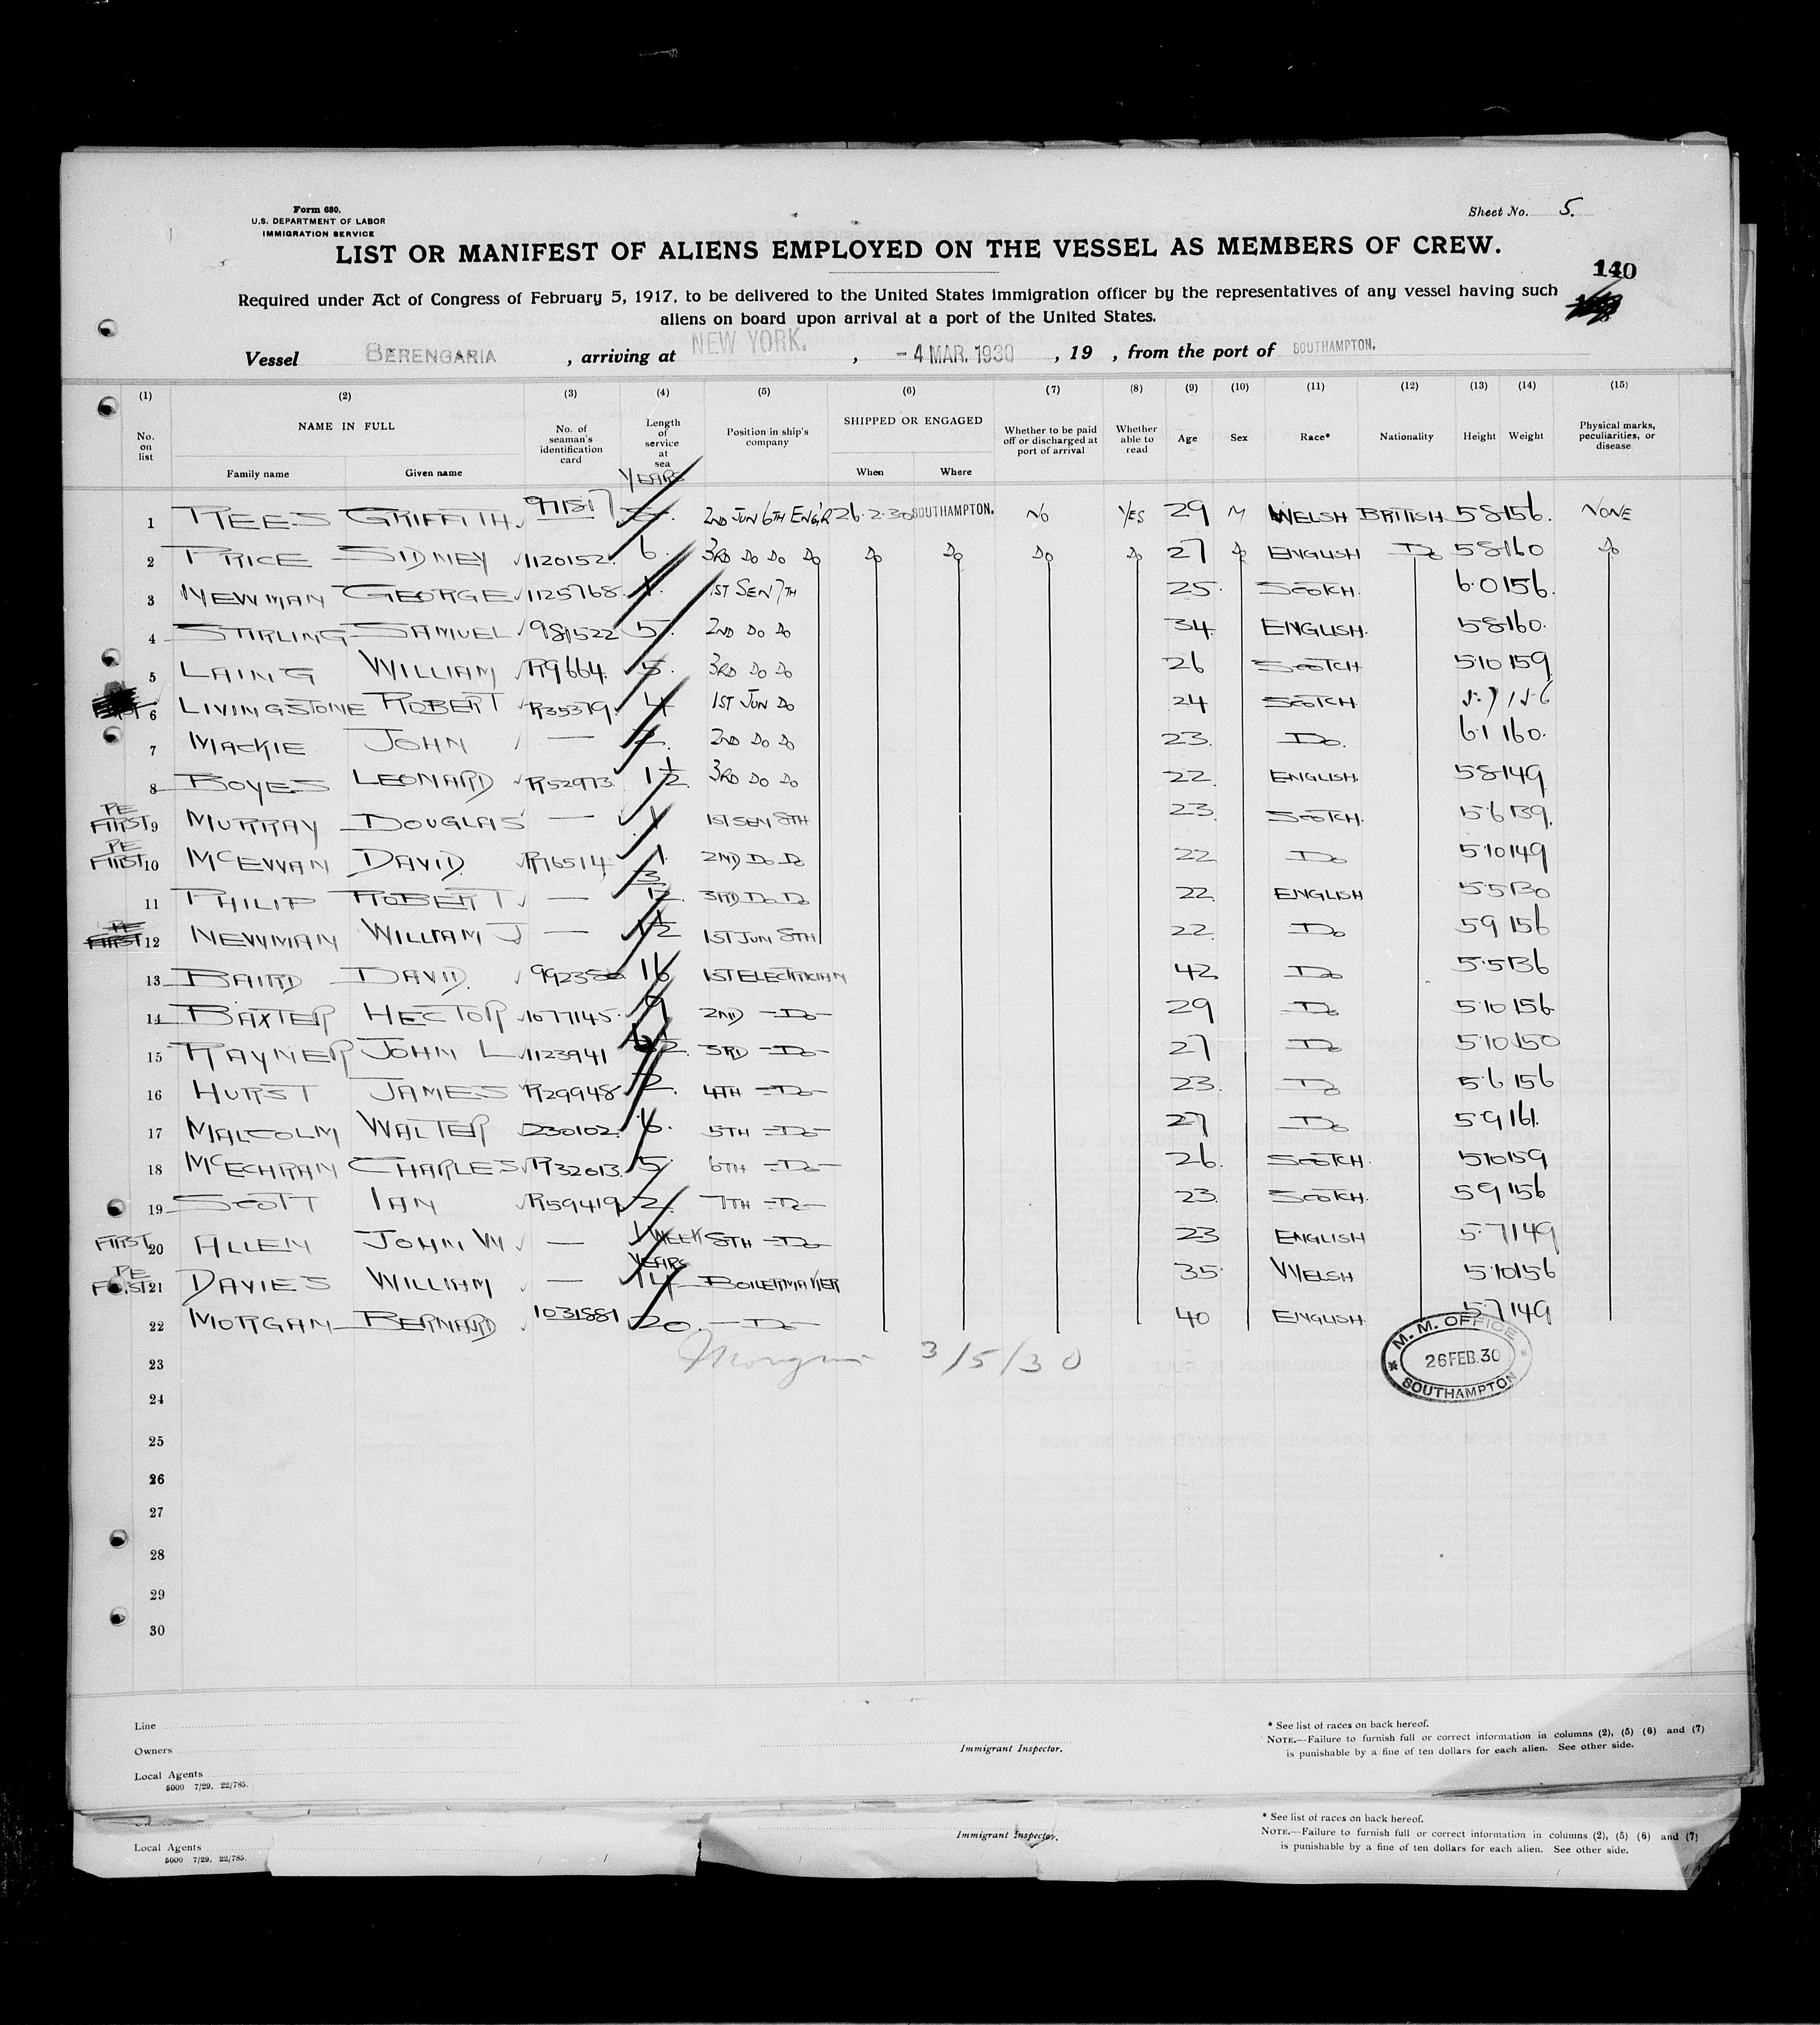 Form 680.
U.S. DEPARTMENT OF LABOR
IMMIGRATION SERVICE
Sheet No. 5.
LIST OR MANIFEST OF ALIENS EMPLOYED ON THE VESSEL AS MEMBERS OF CREW.
140
Required under Act of Congress of February 5, 1917, to be delivered to the United States immigration officer by the representatives of any vessel having such
aliens on board upon arrival at a port of the United States.
Vessel BERENGARIA , arriving at NEW YORK. , - 4 MAR. 1930 , 19 , from the port of SOUTHAMPTON.
(1) (2) (3) (4) (5) (6) (7) (8) (9) (10) (11) (12) (13) (14) (15)
No. on list NAME IN FULL Family name Given name No. of seaman's identification card Length of service at sea Position in ship's company SHIPPED OR ENGAGED When Where Whether to be paid off or discharged at port of arrival Whether able to read Age Sex Race* Nationality Height Weight Physical marks, peculiarities, or disease
YEARS
1 REES GRIFFITH 2ND JUN 6TH ENG'R 26.2.30 SOUTHAMPTON. NO YES 29 M WELSH BRITISH 58 156. NONE
2 PRICE SIDNEY 1120152. 6. 3RD DO DO DO DO DO DO DO 27 DO ENGLISH DO 58 160 DO
3 NEWMAN GEORGE 1125768. 1ST SEN 7TH 25. SCOTCH. 6.0 156.
4 STIRLING SAMUEL 981522 5. 2ND DO DO 34. ENGLISH. 58 160.
5 LAING WILLIAM R9664. 5. 3RD DO DO 26 SCOTCH 510 159
6 LIVINGSTONE ROBERT R35379. 4 1ST JUN DO 24 SCOTCH. 5.7 156
7 MACKIE JOHN — 2. 2ND DO DO 23. DO. 6.1 160.
8 BOYES LEONARD R52973. 1½ 3RD DO DO 22. ENGLISH. 58 149
PE
FIRST 9 MURRAY DOUGLAS — 1 1ST SEN 8TH 23. SCOTCH. 5.6 139.
PE
FIRST 10 MCEWAN DAVID. R16514 1. 2ND DO DO 22 DO 510 149
11 PHILIP ROBERT — 3/12. 3RD DO DO 22. ENGLISH 5.5 130
PE
FIRST 12 NEWMAN WILLIAM J — 1½ 1ST JUN 8TH 22. DO 59 156
13 BAIRD DAVID. 16 1ST ELECTRICIAN 42. DO 5.5 136
14 BAXTER HECTOR 1077145. 9 2ND -DO- 29 DO 510 156
15 RAYNER JOHN L 1123941 3RD -DO- 27 DO 510 150
16 HURST JAMES R29948 2. 4TH -DO- 23. DO 5.6 156
17 MALCOLM WALTER 230102. 6. 5TH -DO- 27 DO 59 161.
18 MCECHRAN CHARLES R32013. 5. 6TH -DO- 26. SCOTCH. 510 159
19 SCOTT IAN R59419 2. 7TH -DO- 23. SCOTCH. 59 156
FIRST 20 ALLEN JOHN W — 1 WEEK 8TH -DO- 23 ENGLISH 5.7 149
PE YEARS
FIRST 21 DAVIES WILLIAM — 14 BOILERMAKER 35. WELSH 510 156
22 MORGAN BERNARD 1031881 20. -DO- 40 ENGLISH 5.7 149
23 3/5/30
M. M. OFFICE
26 FEB. 30
SOUTHAMPTON
24
25
26
27
28
29
30
Line
Owners
Local Agents
5000 7/29. 22/785.
Immigrant Inspector.
* See list of races on back hereof.
NOTE.—Failure to furnish full or correct information in columns (2), (5) (6) and (7)
is punishable by a fine of ten dollars for each alien. See other side.
Local Agents
5000 7/29. 22/785.
Immigrant Inspector.
* See list of races on back hereof.
NOTE.—Failure to furnish full or correct information in columns (2), (5) (6) and (7)
is punishable by a fine of ten dollars for each alien. See other side.